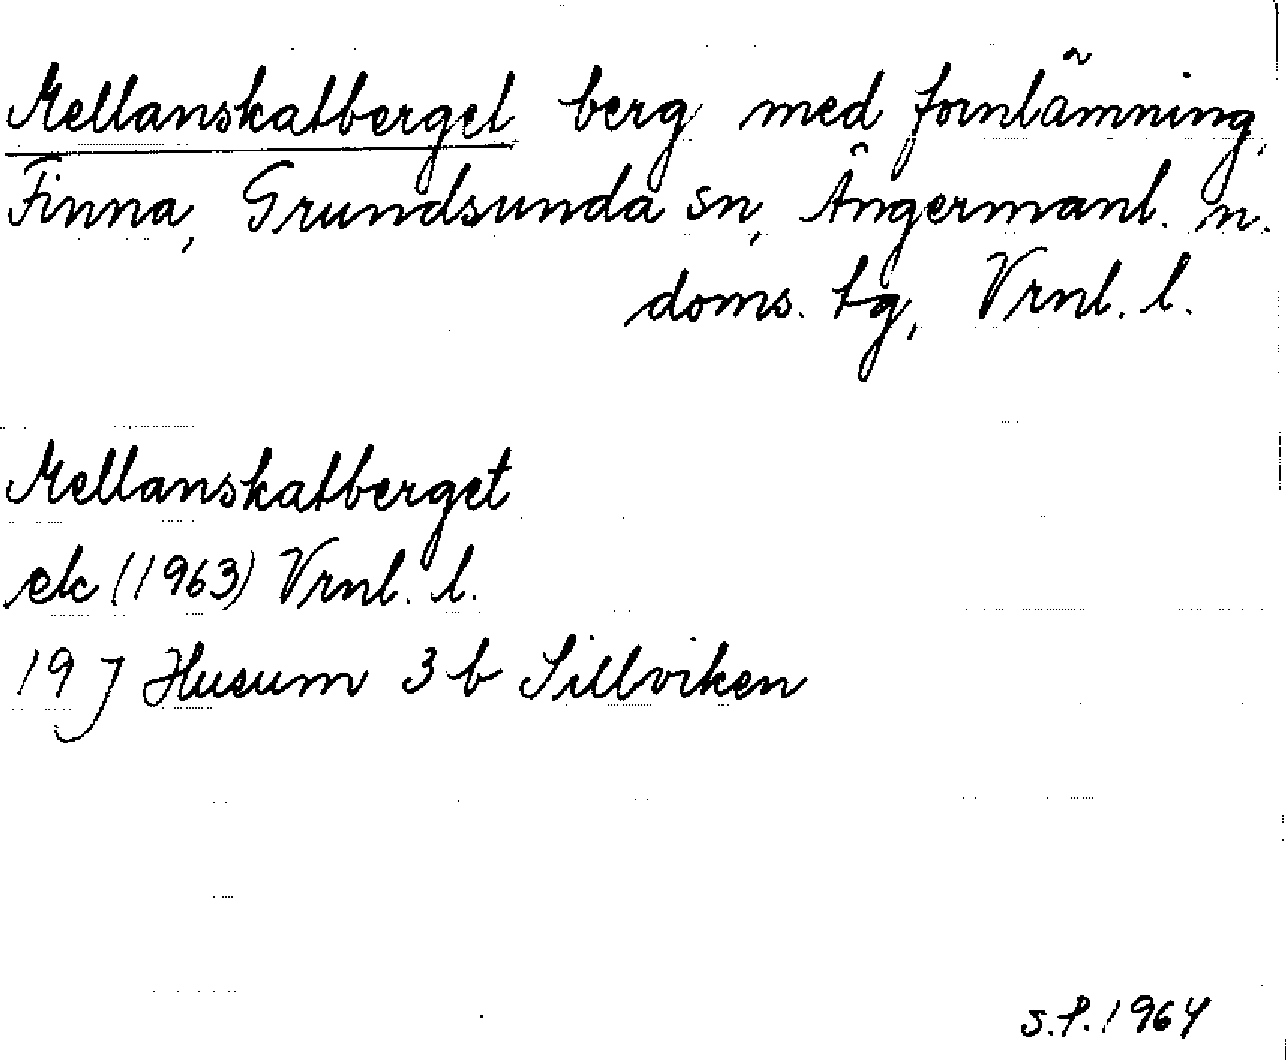 Mellanskatberget berg med fornlämning,
Finna, Grundsunda sn, Ångermanl. n.
doms. tg, Vrnl. l.
Mellanskatberget
ek (1963) Vrnl. l.
19 J Husum 3 b Sillviken
S.P. 1964